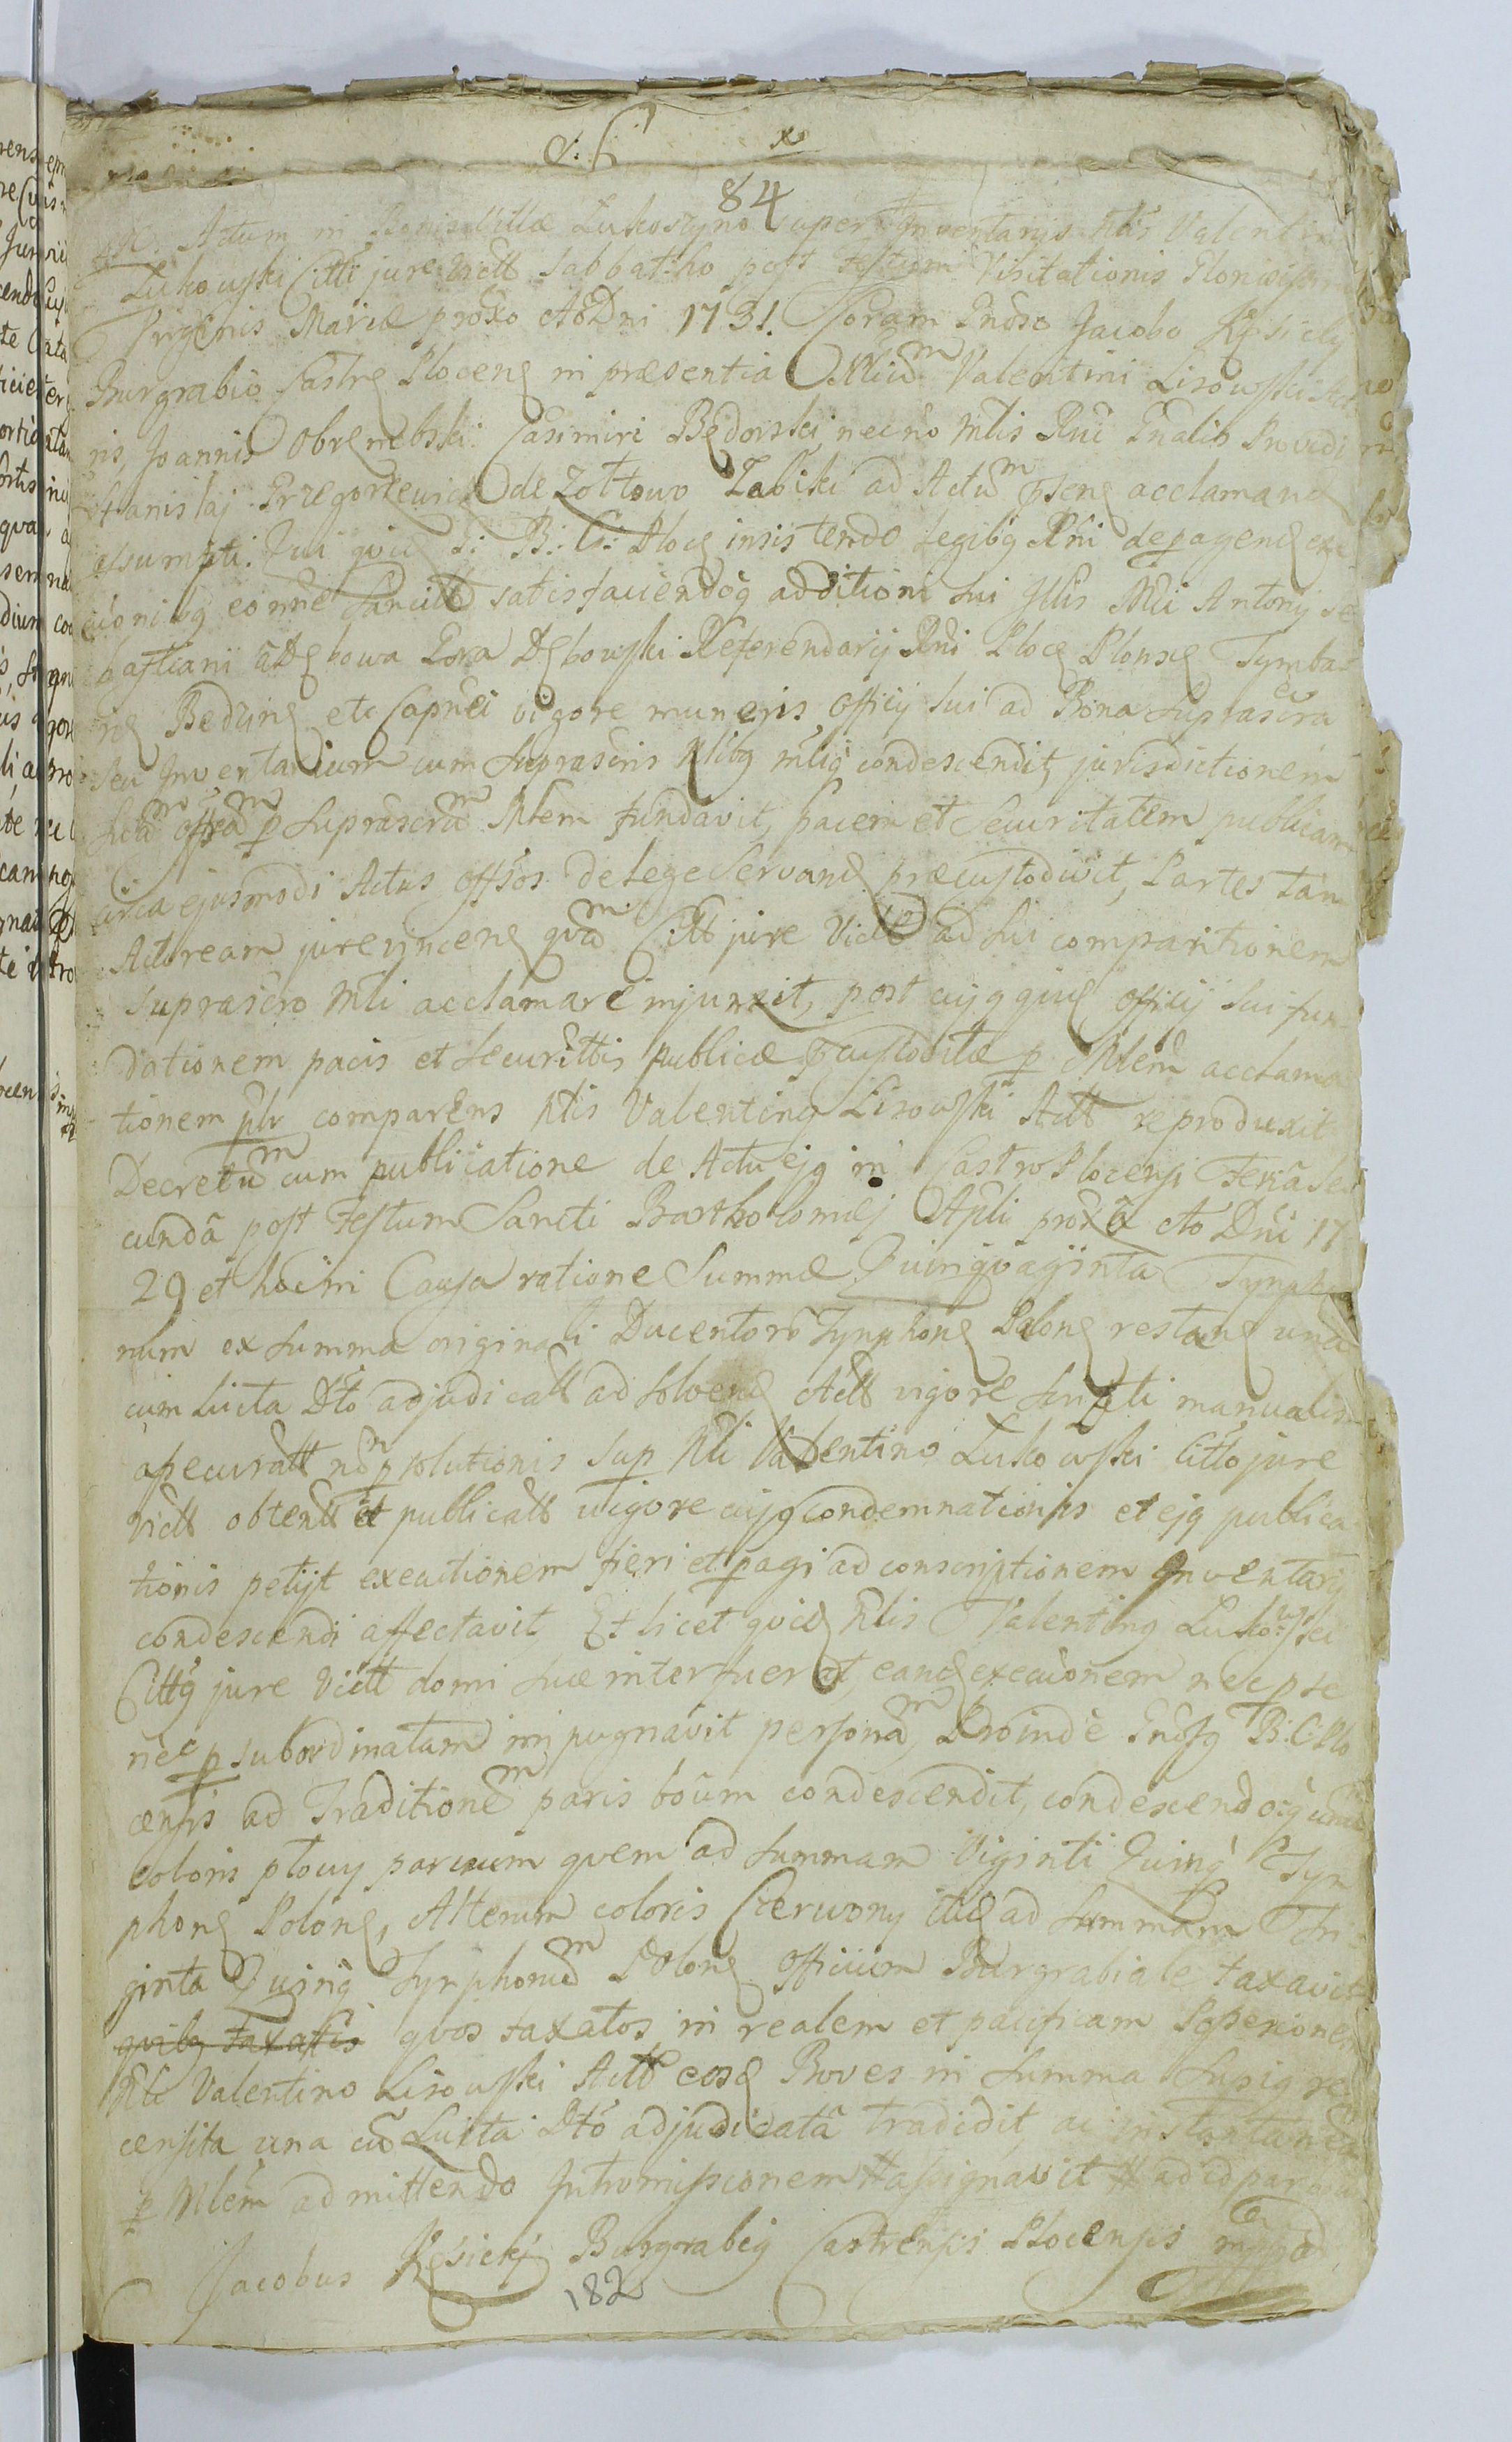 84
Actum in Bonis Villae Lukoszyno super Inventarys Nlis Valentini
Lukowski Citti jure victi Sabbatho post Festum Visitationis Gloriosissimae
Virginis Mariae proxo Ao Dni 1731. Coram Gnoso Jacobo Kęsicky
Burgrabio Castrę Plocenę in praesentia Nliũm Valentini Lisowski Acto
ris, Joannis Obrembski Casimiri Będorski necno Mlis Rni Gnalis Providi
Stanislaj Grzegorzewicz de Zołtowo Zabiki ad Actũm psenę acclamanę
assumpti. Qui quidę B: C: Plocę insistendo legibg Rni de peragendę exe
cuõnibg eonme sancitt satisfaciendoq additioni sui Illis Mci Antonij Se
bastiani a Dębowa Gora Dębowski Referendarij Rni Plocę Plonscę Tymba
rię Bedzinę etc Capnei vigore muneris officij sui ad Bona suprascra
seu Inventarium cum suprascris Nlibg mliq condescendit, jurisdictionem
suãm offsãm p suprascrũm Mlem fundavit, pacem et securitatem publicam
circa ejusmodi Actus offsos de lege servandę praecustodivit, Partes tam
Actoream jurevincenę qvãm Citt jure Victt ad sui comparitionem
suprascro Mli acclamare injunxit, post cujg quidę officij sui fun
dationem pacis et securittis publicae pcustoditae p Mlem acclama
tionem plr comparens Nlis Valenting Lisowski Actt reproduxit
Decretũm cum publicatione de Actu ejg in Castro Plocensi Feria Se
cundã post Festum Sancti Bartholomej Apli proxã Ao Dni 17
29 et hacin Causa ratione Summae Quinqvaginta Tynpho
num ex summa originali Ducentorũ Tynphonę Polonę restanę una
cum lucta Dto adjudicatt ad solvenę Actt vigore scripti manualis
assecuratt nõn p solutionis sup Nli Valentino Lukowski Citto jure
victt obtentt et publicatt vigore cujg condemnationis et ejg publica
tionis petijt executionem fieri et pagi ad conscriptionem Inventarij
condescendi affectavit Et licet quidę Nlis Valenting Lukowski
Cittg jure Victt domi suae interfuerat, eandę execuõnem nec p se
nec p subordinatam impugnavit personãm, Proinde Gnosg B: C Plo
censis ad Traditionẽm paris boum condescendit, condescendoq unũ
coloris płowy parvum quem ad summam Viginti Quinq Tyn
phonę Polonę, Alterum coloris Czerwony itidę ad summam Tri
ginta Quinq Tynphonũm Polonę officium Burgrabiale taxavit
quibg taxatis quos taxatos in realem et pacificam Possessionem
Nli Valentino Lisowski Actt eosdę Boves in summa supig re
censita una cũ Lucta Dto adjudicatã tradidit ac instantanea
p Mlem admittendo Intromissionem assignavit ad id paratũ
Jacobus Kęsicky Burgrabig Castrensis Plocensis mpp
182